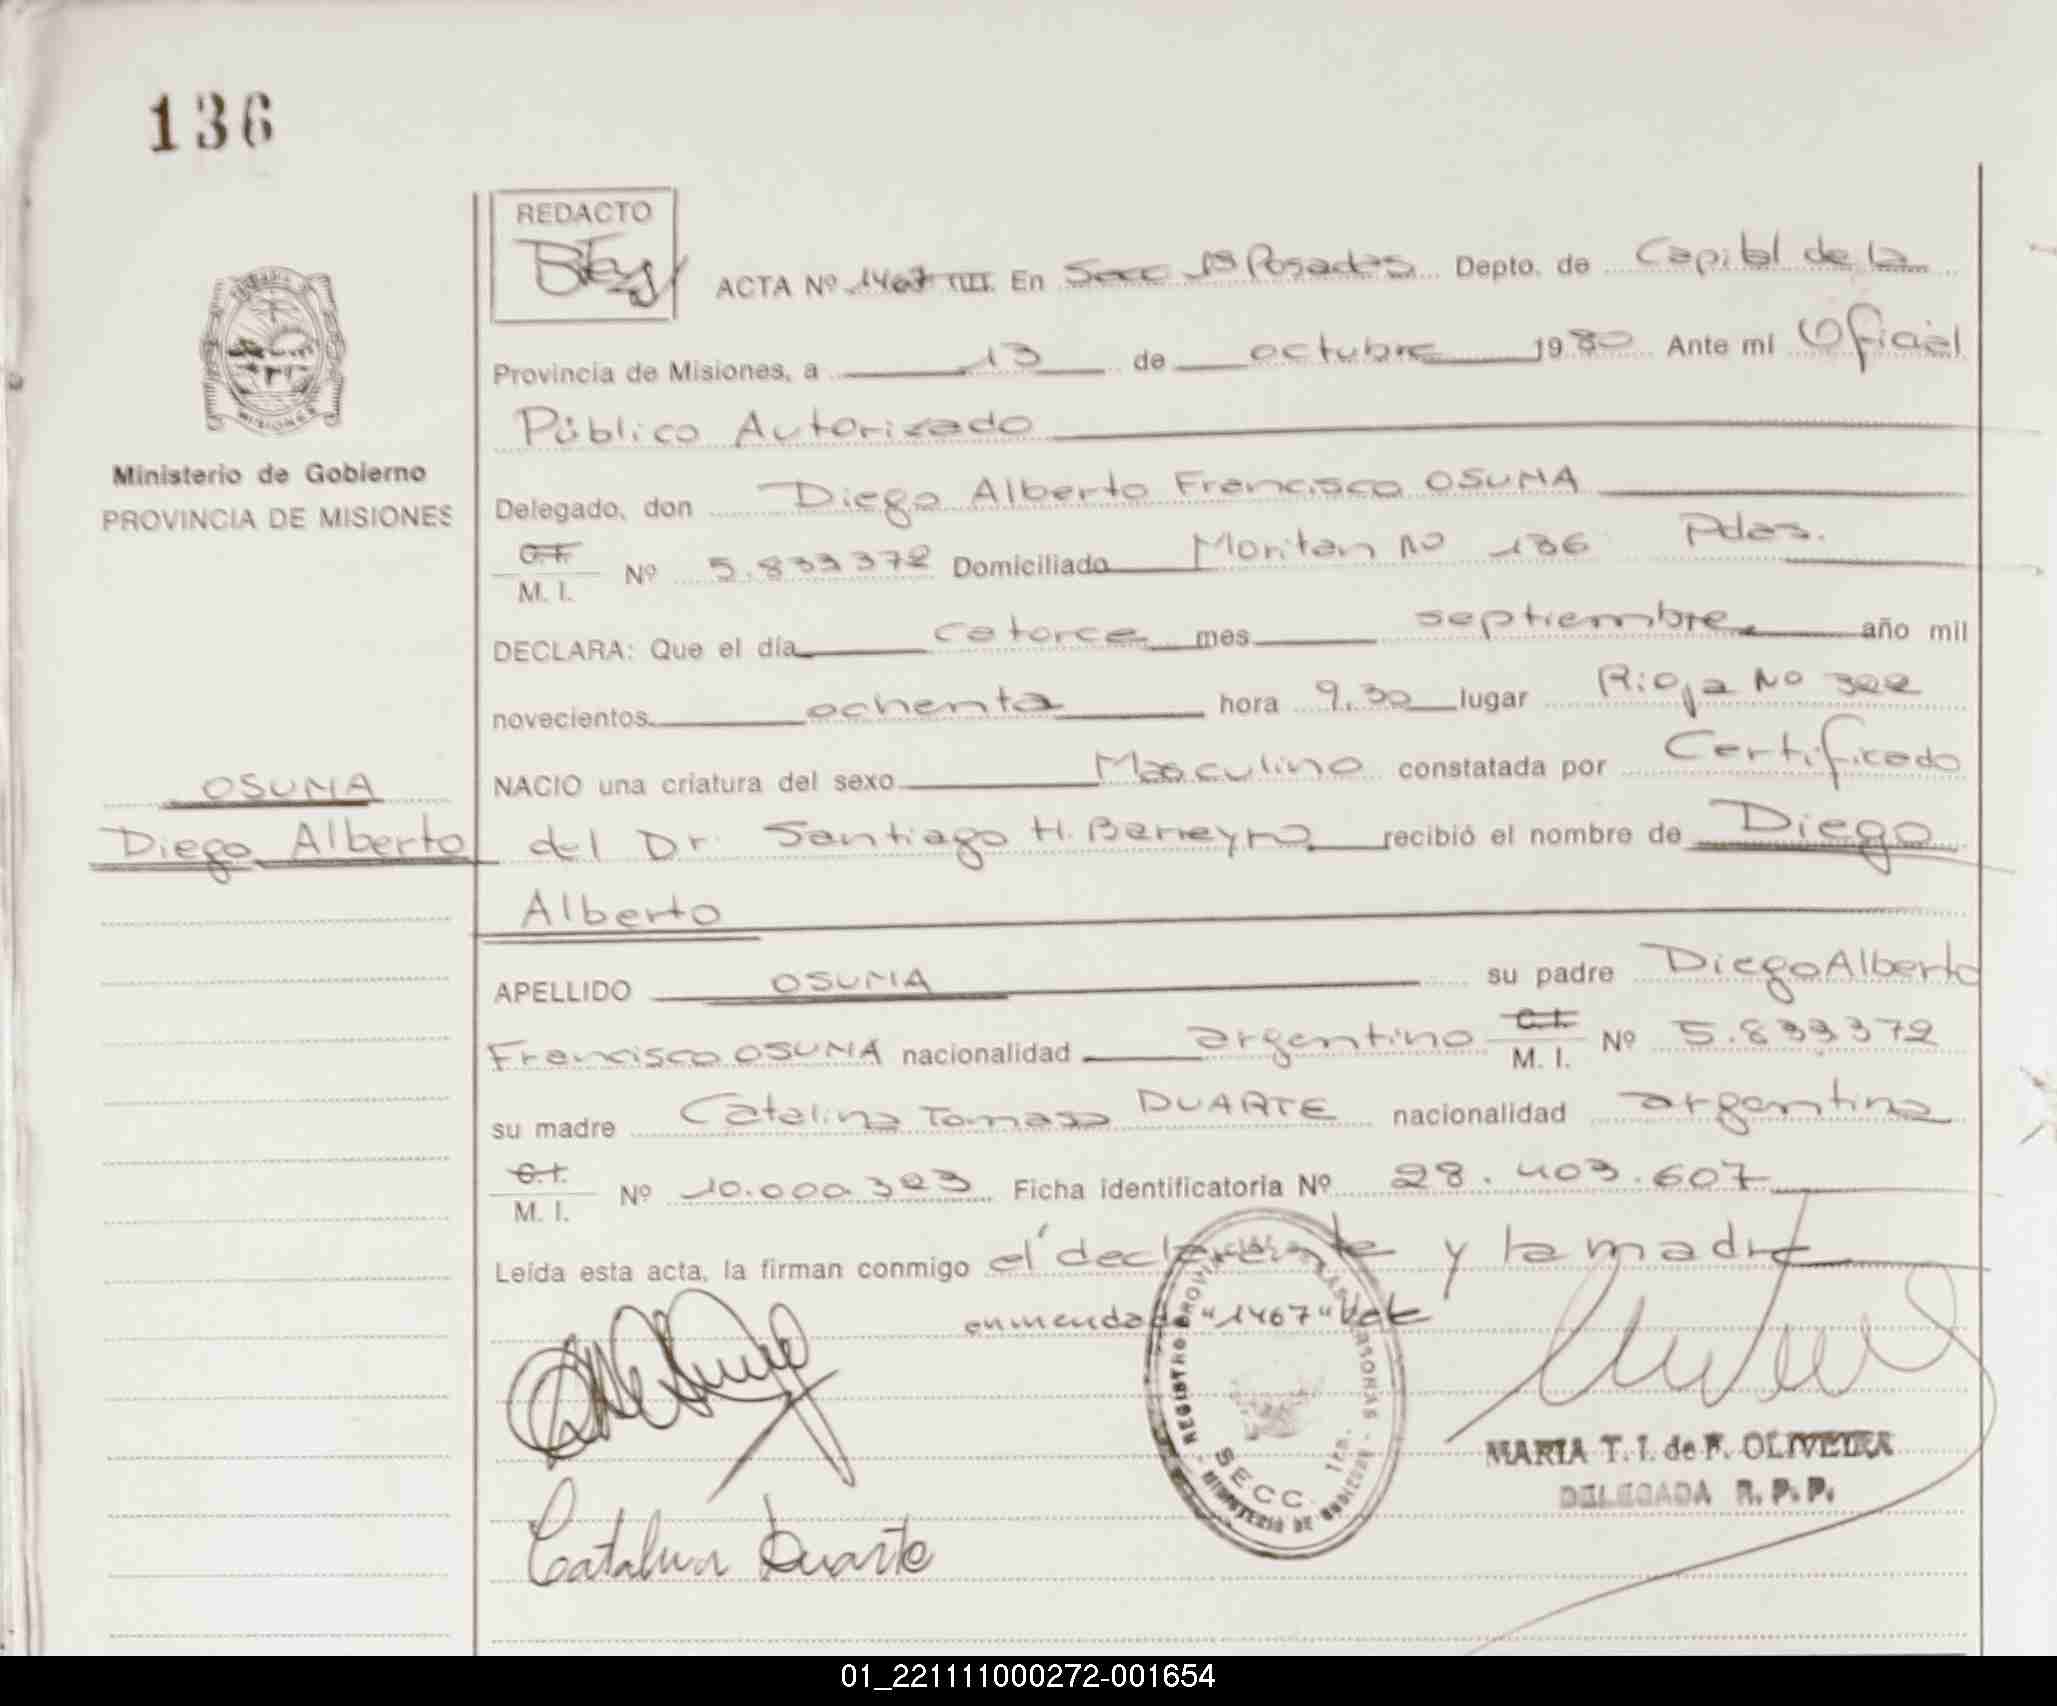 136
REDACTO
ACTA Nº 1467 III En Secc 1ª Posadas Depto. de Capital de la
Provincia de Misiones, a 13 de octubre 1980 Ante mí Oficial
Público Autorizado
Ministerio de Gobierno
PROVINCIA DE MISIONES
Delegado, don Diego Alberto Francisco OSUNA
C.I.
M. I. Nº 5.833372 Domiciliado Moritan Nº 136 Pdas.
DECLARA: Que el día catorce mes septiembre año mil
novecientos ochenta hora 9,30 lugar Rioja Nº 322
NACIO una criatura del sexo Masculino constatada por Certificado
OSUNA
Diego Alberto
del Dr. Santiago H. Barreyro recibió el nombre de Diego
Alberto
APELLIDO OSUNA su padre Diego Alberto
Francisco OSUNA nacionalidad argentino C.I. M. I. Nº 5.833372
su madre Catalina Tomasa DUARTE nacionalidad argentina
C.I.
M. I. Nº 10.000.323 Ficha identificatoria Nº 28.403.607
Leída esta acta, la firman conmigo el declarante y la madre
enmendado "1467" Vale
REGISTRO PROVINCIAL DE LAS PERSONAS
SECC. 1ra.
MINISTERIO DE GOBIERNO
MARIA T. I. de F. OLIVEIRA
DELEGADA R. P. P.
Catalina Duarte
01_221111000272-001654